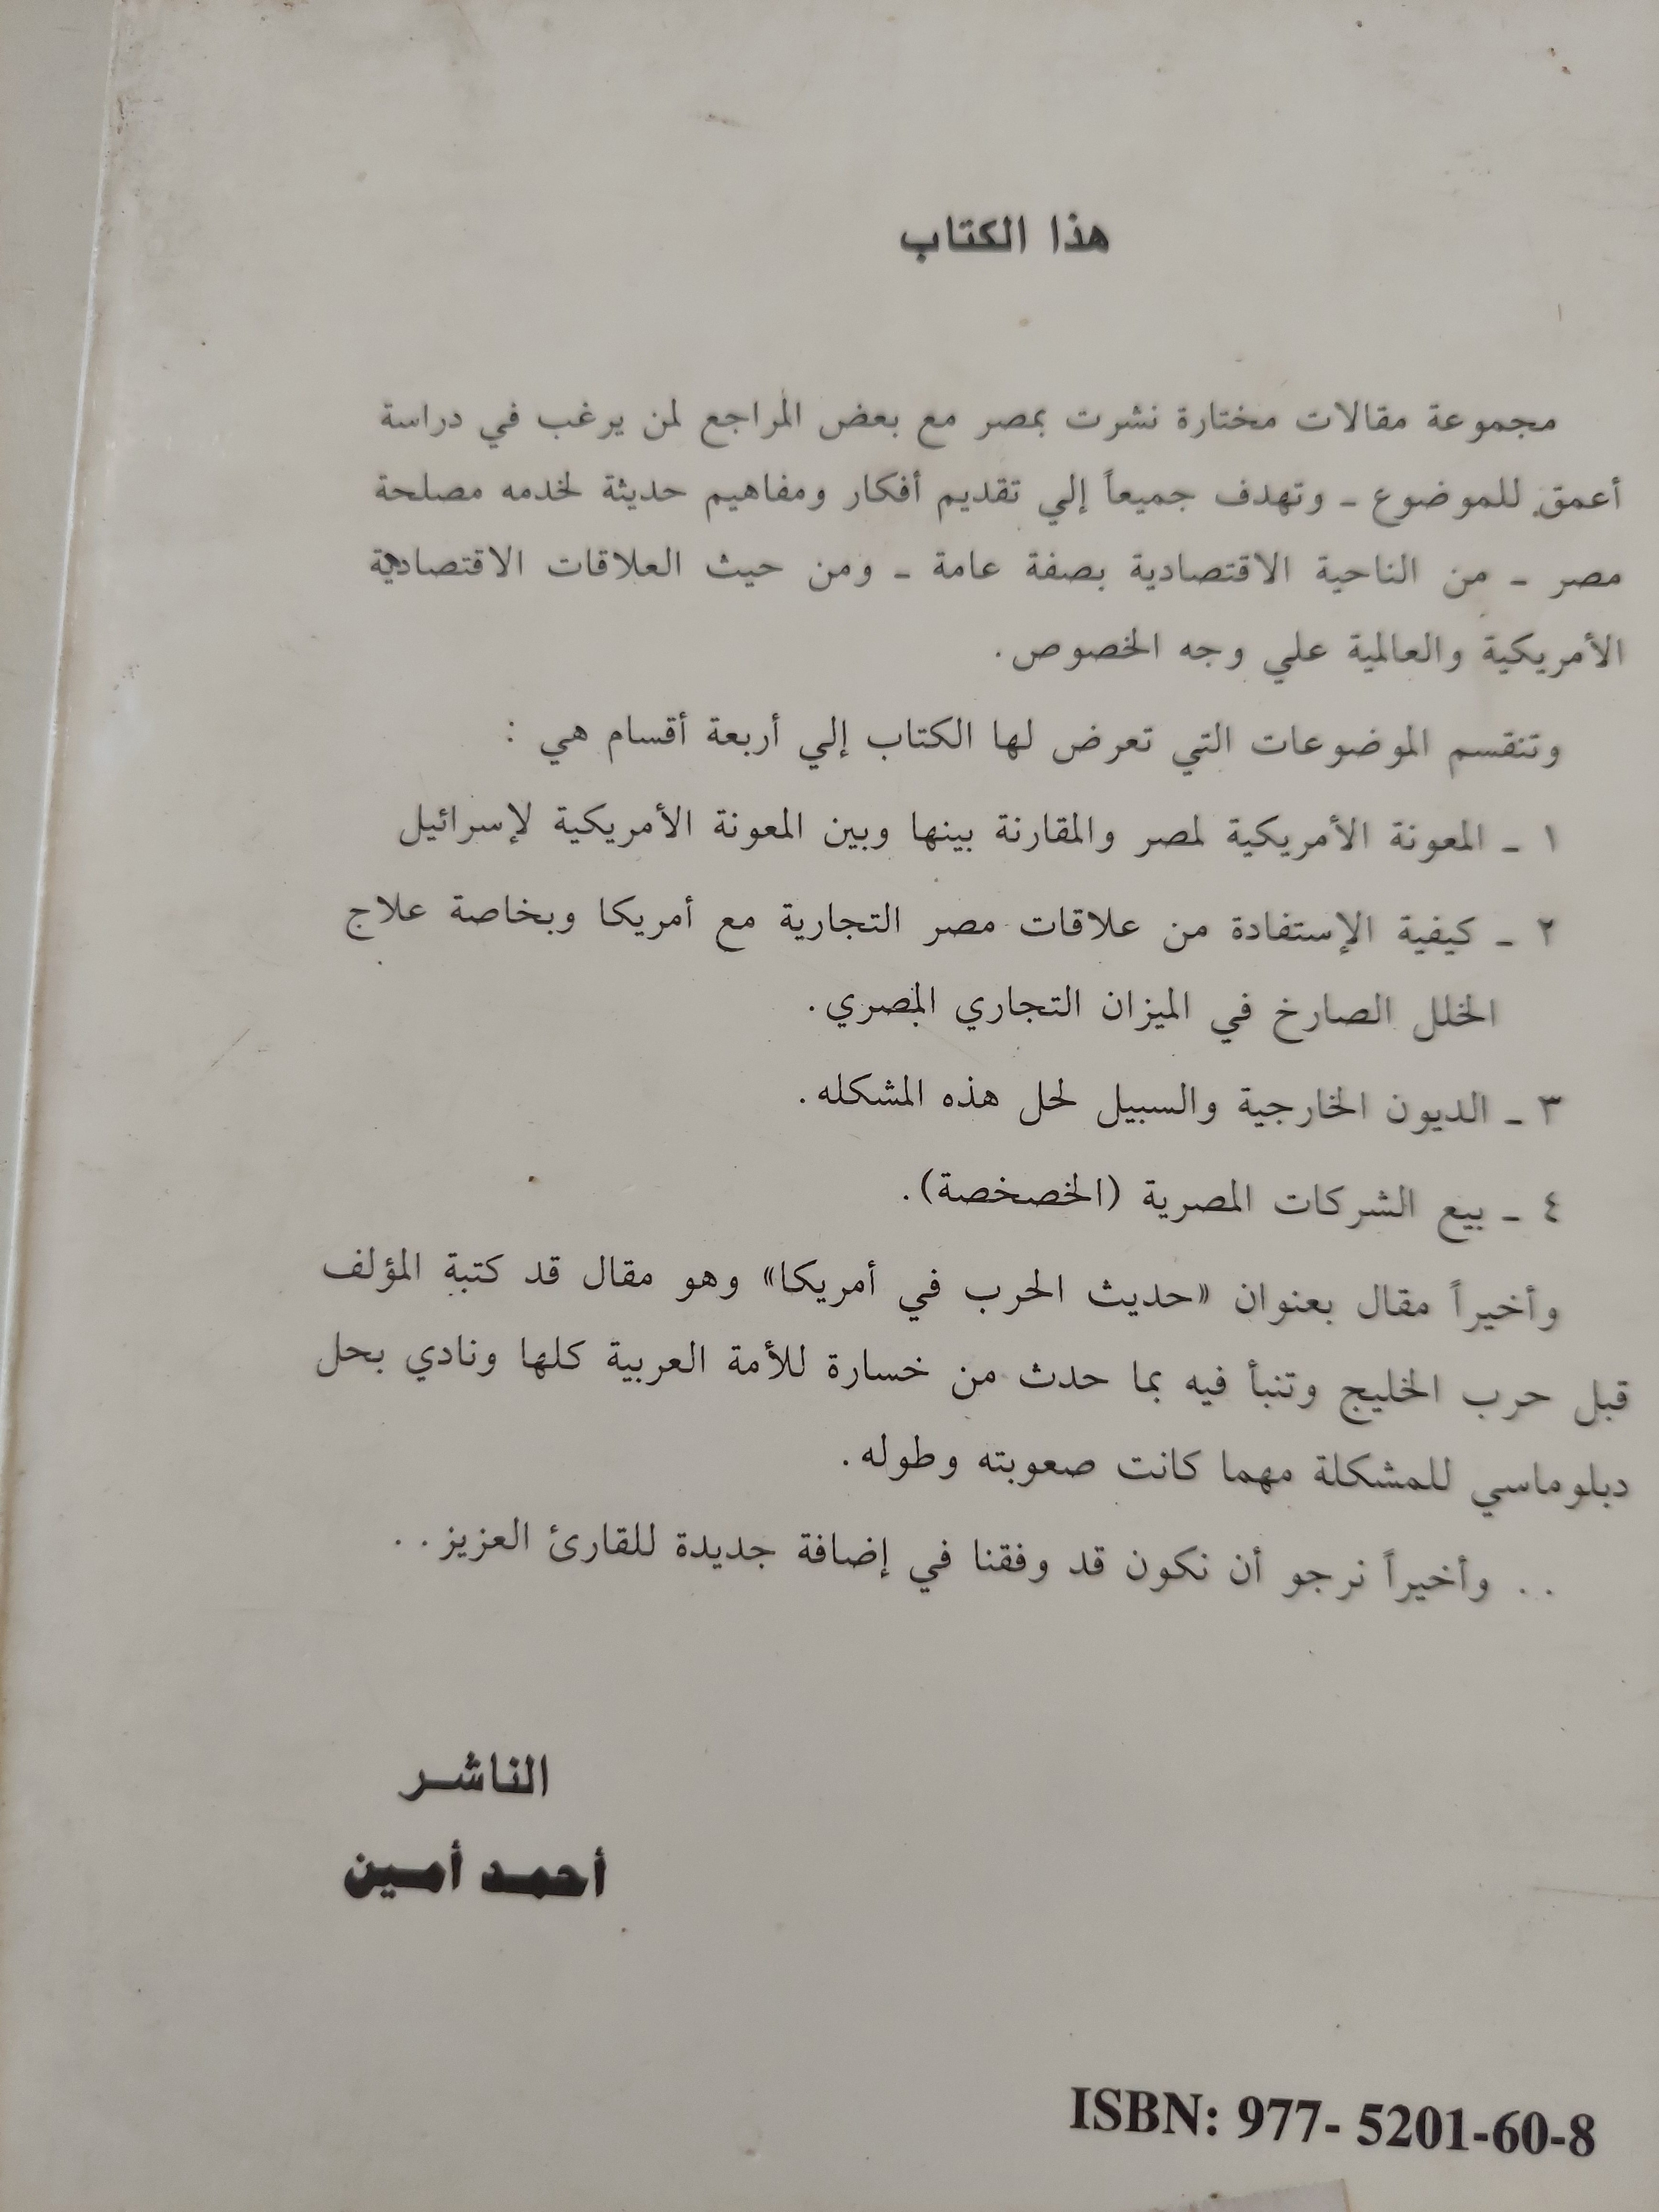 هذا الكتاب
مجموعة مقالات مختارة نشرت بمصر مع بعض المراجع لمن يرغب في دراسة
أعمق للموضوع ـ وتهدف جميعاً إلي تقديم أفكار ومفاهيم حديثة لخدمه مصلحة
مصر ـ من الناحية الاقتصادية بصفة عامة ـ ومن حيث العلاقات الاقتصادية
الأمريكية والعالمية علي وجه الخصوص.
وتنقسم الموضوعات التي تعرض لها الكتاب إلي أربعة أقسام هي :
١ ـ المعونة الأمريكية لمصر والمقارنة بينها وبين المعونة الأمريكية لإسرائيل
٢ ـ كيفية الإستفادة من علاقات مصر التجارية مع أمريكا وبخاصة علاج
الخلل الصارخ في الميزان التجاري المصري.
٣ ـ الديون الخارجية والسبيل لحل هذه المشكله.
٤ ـ بيع الشركات المصرية (الخصخصة).
وأخيراً مقال بعنوان «حديث الحرب في أمريكا» وهو مقال قد كتبة المؤلف
قبل حرب الخليج وتنبأ فيه بما حدث من خسارة للأمة العربية كلها ونادي بحل
دبلوماسي للمشكلة مهما كانت صعوبته وطوله.
. . وأخيراً نرجو أن نكون قد وفقنا في إضافة جديدة للقارئ العزيز . .
الناشر
أحمد أمين
ISBN: 977- 5201-60-8